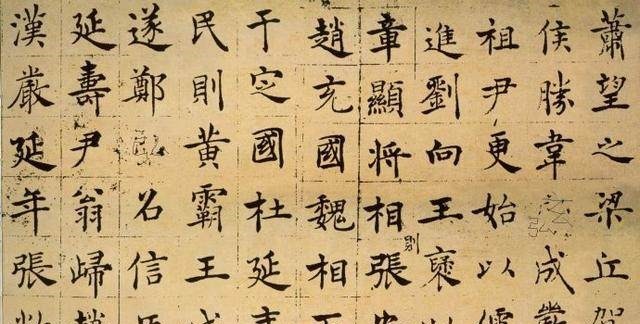 蕭望之梁丘賀
侯勝韋玄成嚴
祖尹更始以儒
進劉向王褒以
章顯將相張
別
趙充國魏相
于定國杜延年
民則黃霸王成
遂鄭弘召信臣
延壽尹翁歸趙
漢嚴延年張敞